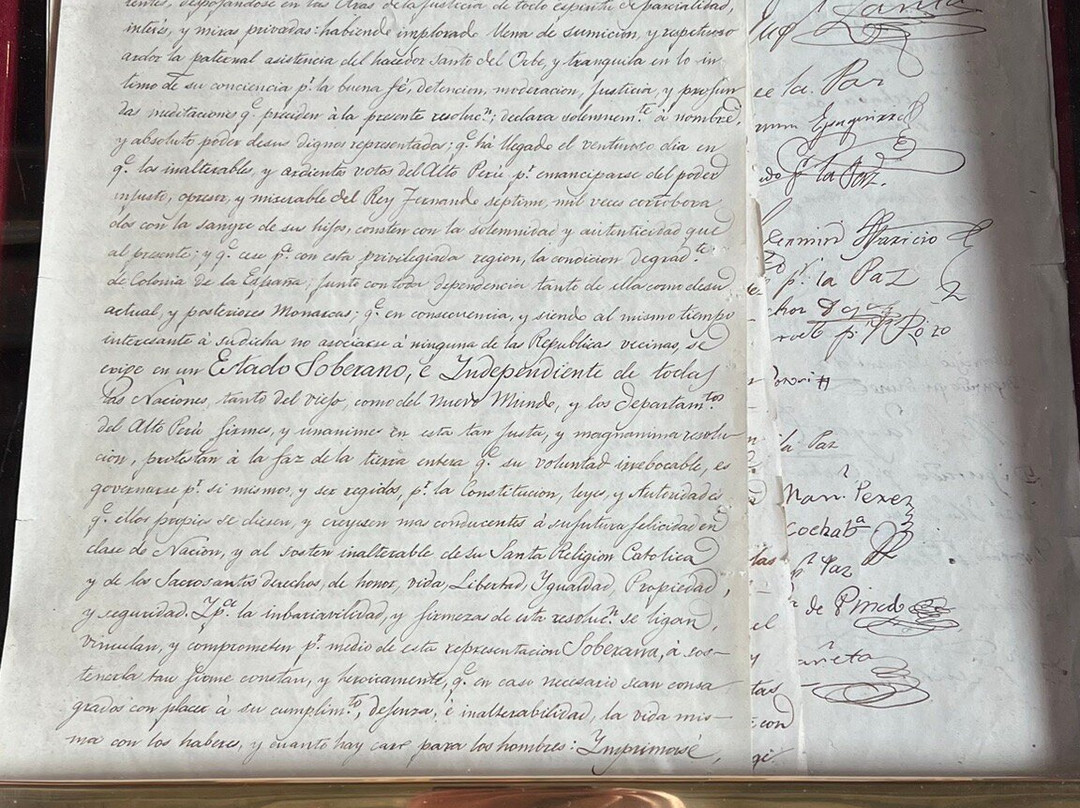 rentes, despojándose en las Aras de la justicia de todo espiritu de parcialidad,
interes, y miras privadas: habiendo implorado llena de sumicion, y respetuoso
ardor la paternal asistencia del hacedor Santo del Orbe, y tranquila en lo in-
timo de su conciencia pr. la buena fé, detencion, moderacion, Justicia, y profun-
das meditaciones q. preciden à la presente resolucn; declara solemnemte. à nombre,
y absoluto poder de sus dignos representados; q. há llegado el venturoso dia en
q. los inalterables, y ardientes votos del Alto Perú pr. emanciparse del poder
injusto, opresor, y miserable del Rey Fernando septimo, mil veces corrobora
dos con la sangre de sus hijos, consten con la solemnidad y autenticidad que
al presente; y q. cese pa. con esta privilegiada region, la condicion degradte.
de Colonia de la España, junto con toda dependencia tanto de ella como de su
actual, y posteriores Monarcas; q. en consecuencia, y siendo al mismo tiempo
interesante à su dicha no asociarse à ninguna de las Republicas vecinas, se
erige en un Estado Soberano, é Independiente de todas
las Naciones, tanto del viejo, como del Nuevo Mundo, y los Departamtos.
del Alto Perú firmes, y unanimes en esta tan Justa, y magnanima resolu-
cion, protestan à la faz de la tierra entera q. su voluntad irrebocable, es
governarse pr. si mismos, y ser regidos, pr. la Constitucion, leyes, y Autoridades
q. ellos propios se diesen, y creyesen mas conducentes à su futura felicidad en
clase de Nacion, y al sosten inalterable de su Santa Religion Catolica
y de los Sacrosantos derechos, de honor, vida, Libertad, Ygualdad, Propiedad,
y seguridad. Y pa. la inbariavilidad, y firmezas de esta resolucn. se ligan,
vinculan, y comprometen pr. medio de esta representacion Soberana, à sos-
tenerla tan firme constan, y heroicamente, q. en caso necesario sean consa
grados con placer à su cumplimto, defenza, é inalterabilidad, la vida mis-
ma con los haberes, y cuanto hay caro para los hombres: Ymprimase,
la Paz
Eysaguirre
pr. la Paz.
Fermin Aparicio
pr. la Paz
la Paz
Manl. Perez
Cochaba.
pr. Paz
de Pinedo